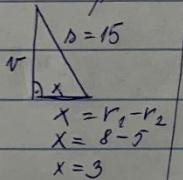 s = 15
v
x
x = r₁ - r₂
x = 8 - 5
x = 3